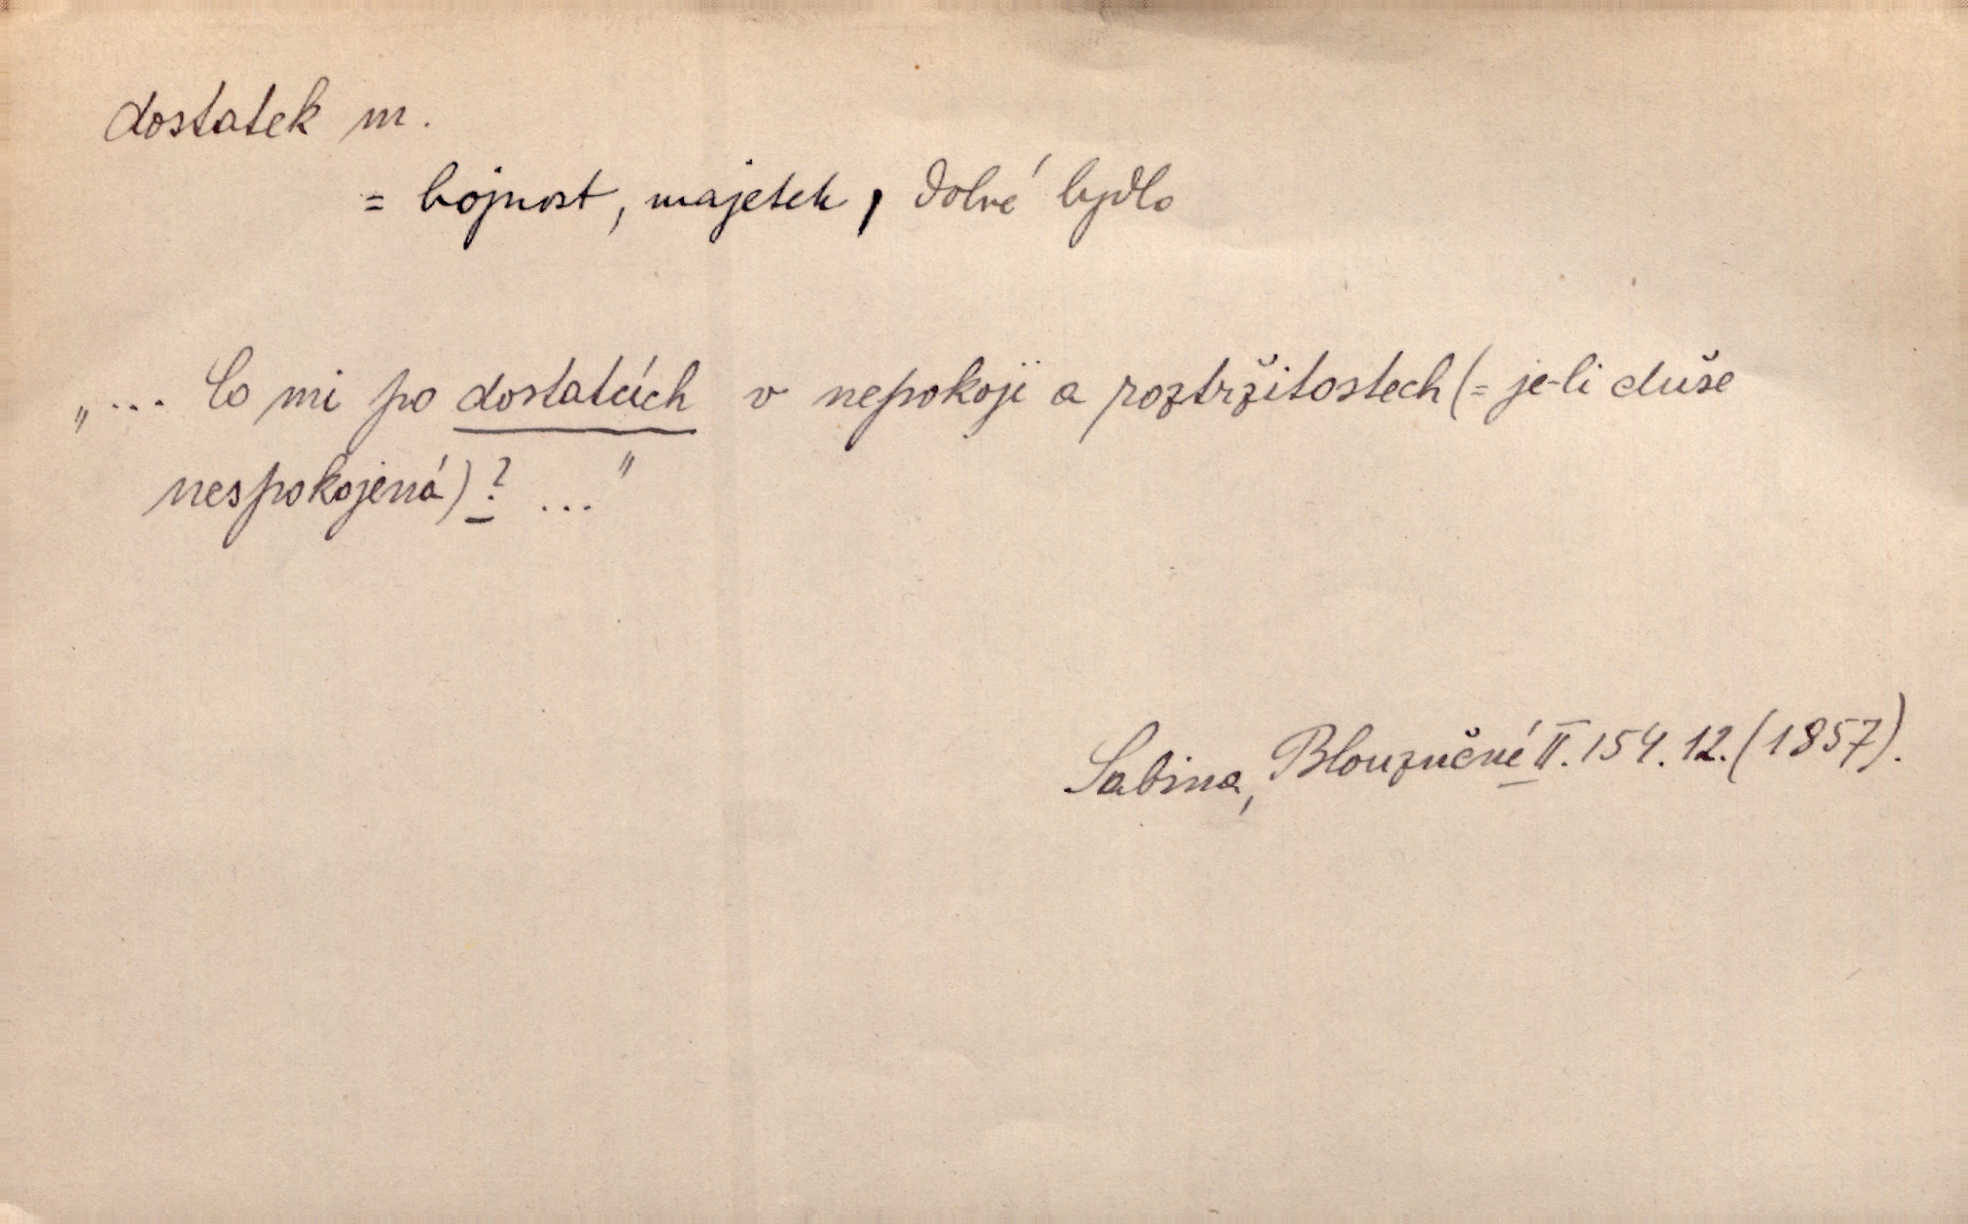 dostatek m.
= hojnost, majetek, dobré bydlo
„... Co mi po dostatcích v nepokoji a roztržitostech (= je-li duše
nespokojená)? ..."
Sabina, Blouznění II. 154. 12. (1857).